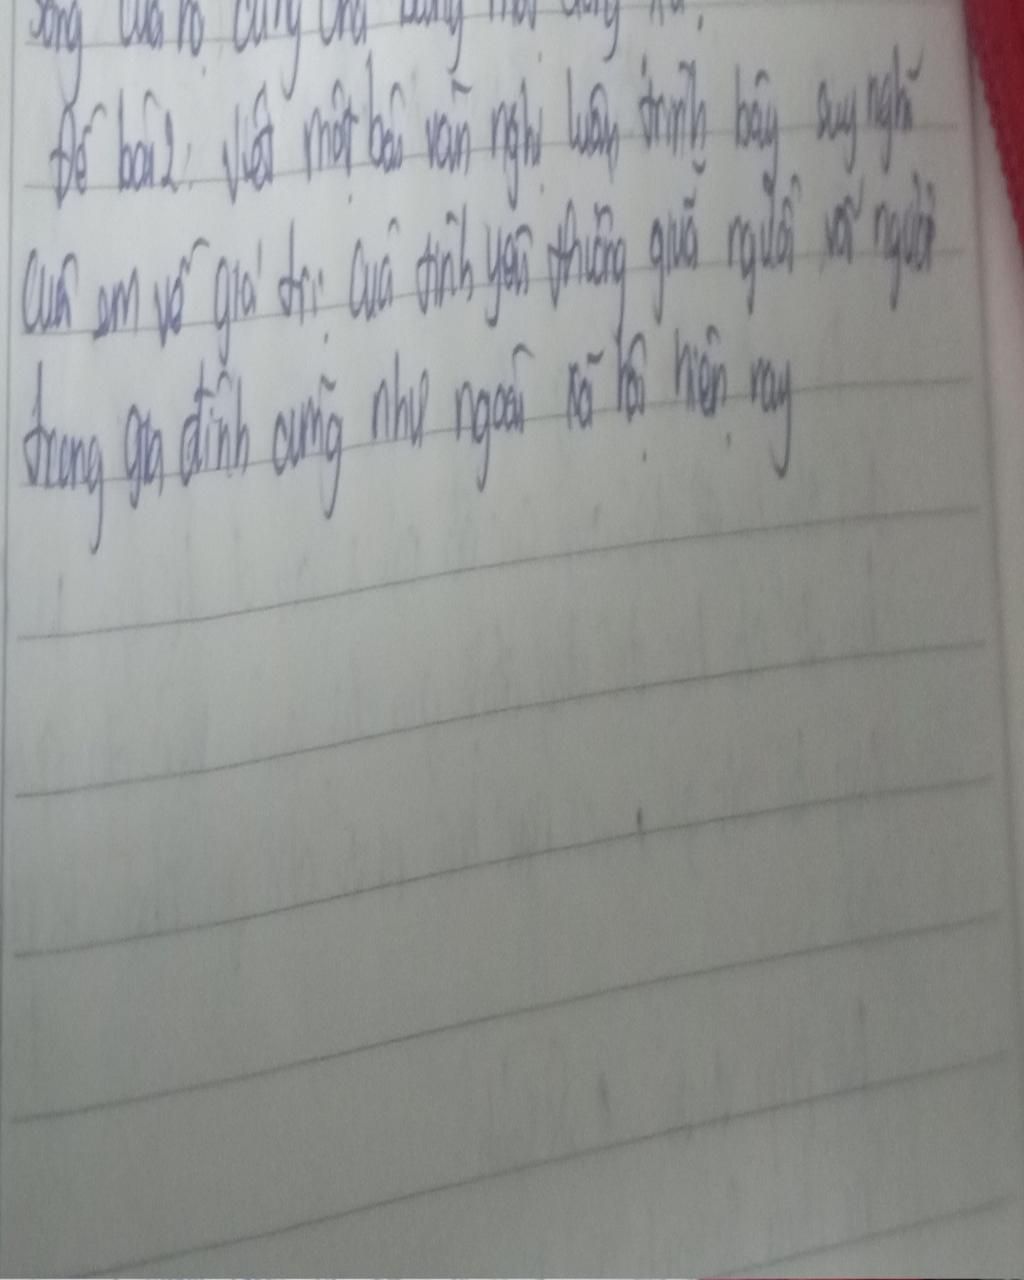 sống của
Đề bài 2: Viết một bài văn nghị luận trình bày suy nghĩ
của em về giá trị của tình yêu thương giữa người với người
trong gia đình cũng như ngoài xã hội hiện nay